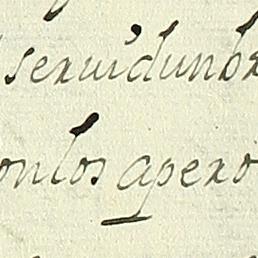 seruidunbr
onlos apero